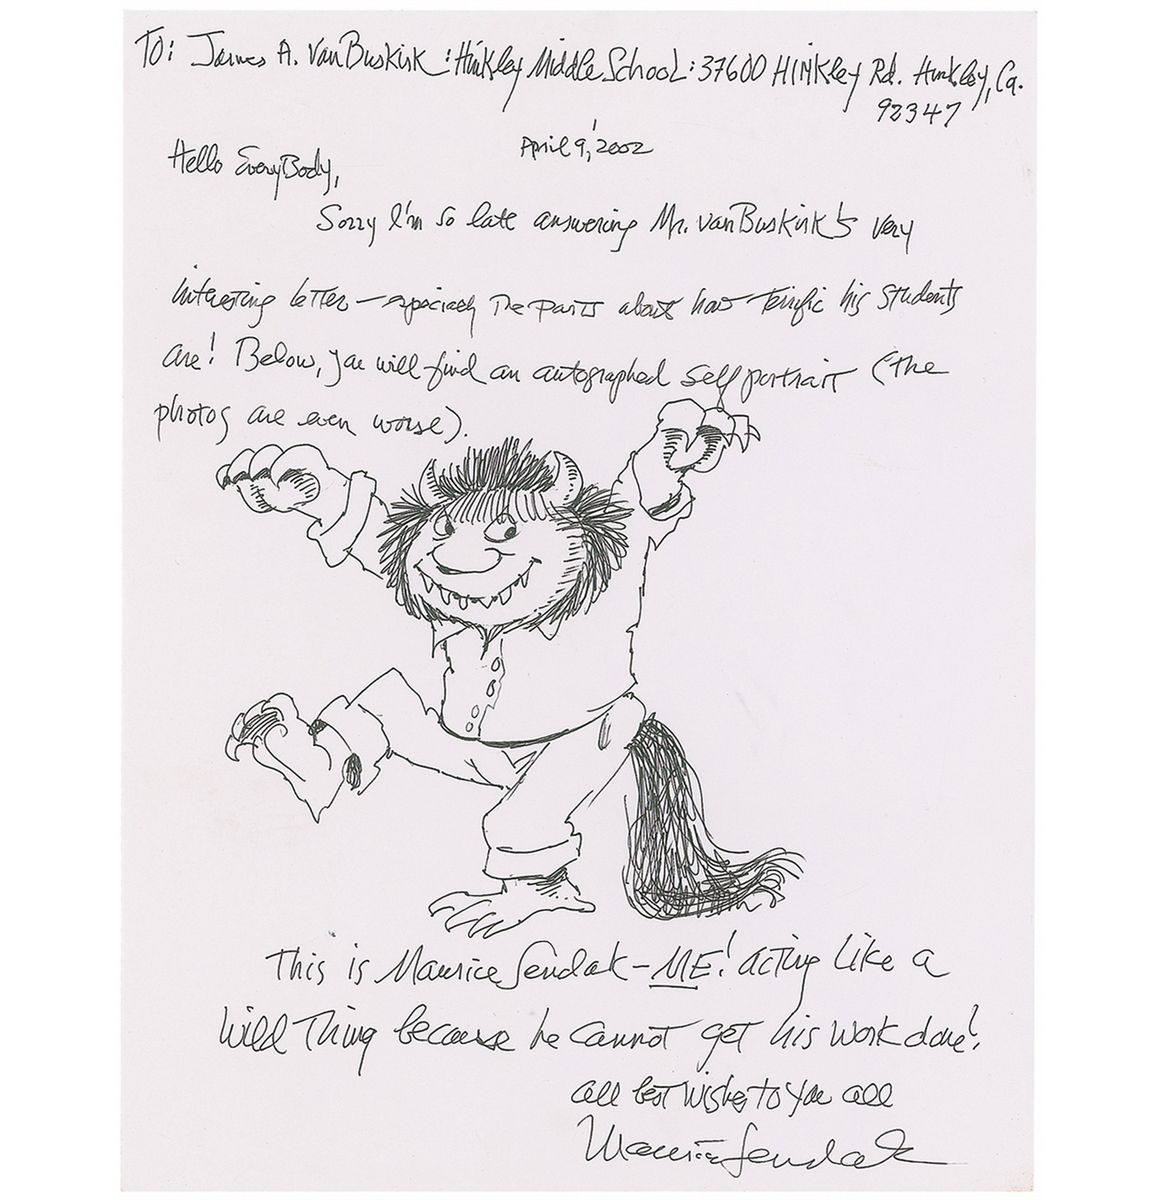 To: James A. VanBuskirk : Hinkley Middle School : 37600 Hinkley Rd. Hinkley, Ca.
92347
April 9, 2002
Hello EveryBody,
Sorry I'm so late answering Mr. vanBuskirk's very
interesting letter — especially the parts about how terrific his students
are! Below, you will find an autographed self portrait (the
photos are even worse).
This is Maurice Sendak – ME! acting like a
Wild Thing because he cannot get his work done!
all best wishes to you all
Maurice Sendak